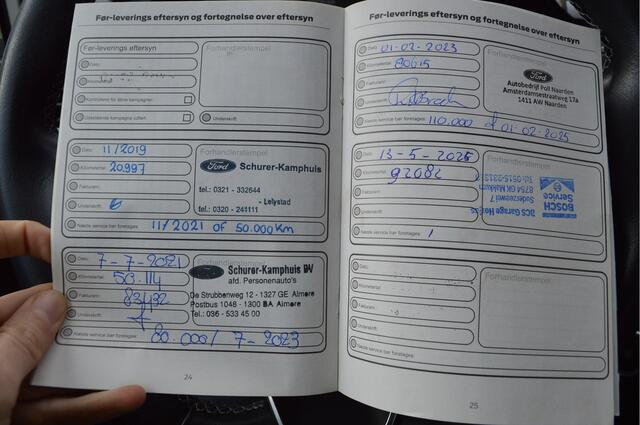 Før-leverings eftersyn og fortegnelse over eftersyn
Før-leverings eftersyn
Forhandlerstempel
Dato:
Kontrolleret for åbne kampagner:
Udestående kampagne udført:
Underskrift:
Dato: 11/2019
Kilometertal: 20997
Fakturanr.:
Underskrift:
Næste service bør foretages: 11/2021 OF 50.000 KM
Forhandlerstempel
Ford SCHURER-KAMPHUIS
- Lelystad
tel.: 0321 - 332644
tel.: 0320 - 241111
Dato: 7-7-2021
Kilometertal: 50.114
Fakturanr.:
Underskrift:
Næste service bør foretages: 80.000/ 7-2023
Ford Schurer-Kamphuis BV
afd. Personenauto's
De Strubbenweg 12 - 1327 GE Almere
Postbus 1048 - 1300 BA Almere
Tel.: 036 - 533 45 00
24
Før-leverings eftersyn og fortegnelse over eftersyn
Dato: 01-02-2023
Kilometertal: 80615
Fakturanr.:
Underskrift:
Næste service bør foretages: 110.000 01-02-2025
Forhandlerstempel
Ford
Autobedrijf Poll Naarden
Amsterdamsestraatweg 17a
1411 AW Naarden
Dato: 13-5-2025
Kilometertal: 92082
Fakturanr.:
Underskrift:
Næste service bør foretages: /
Forhandlerstempel
BOSCH
Service
BCS Garage
Suderzeewei 7
8754 GK Makkum
Dato:
Kilometertal:
Fakturanr.:
Underskrift:
Næste service bør foretages:
Forhandlerstempel
25